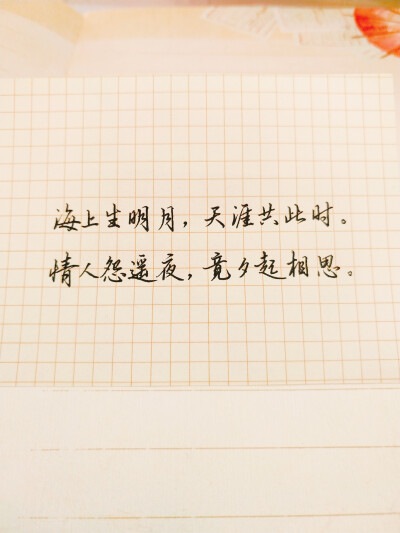 海上生明月，天涯共此时。
情人怨遥夜，竟夕起相思。